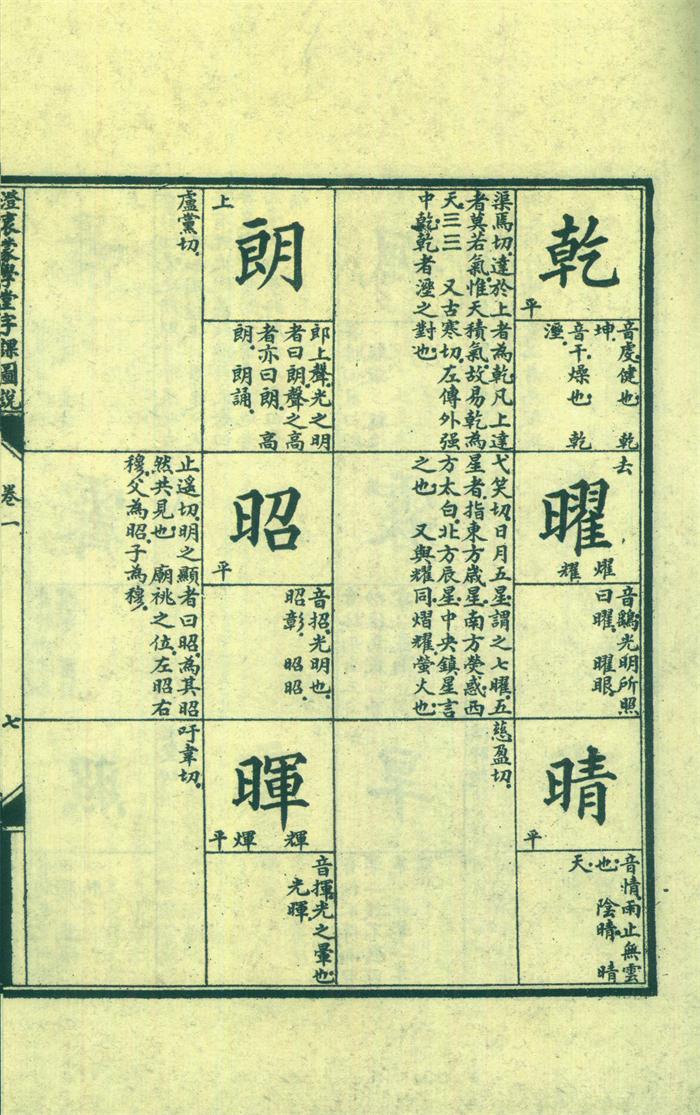 乾
平
音虔健也 乾
坤
音干燥也 乾
溼
渠焉切達於上者為乾凡上達
者莫若氣惟天積氣故易乾為
天三三 又古寒切左傳外强
中乾乾者溼之對也
曜
去
燿
耀
音鷂光明所照
曰曜 曜眼
弋笑切日月五星謂之七曜五
星者指東方歲星南方熒惑西
方太白北方辰星中央鎮星言
之也 又與耀同熠耀螢火也
晴
平
音情雨止無雲
也 陰晴 晴
天
慈盈切
朗
上
郎上聲光之明
者曰朗聲之高
者亦曰朗 高
朗 朗誦
盧黨切
昭
平
音招光明也
昭彰 昭昭
止遙切明之顯者曰昭為其昭
然共見也 廟祧之位左昭右
穆父為昭子為穆
暉
輝
煇
平
音揮光之暈也
光暉
吁韋切
澄衷蒙學堂字課圖說
卷一
七